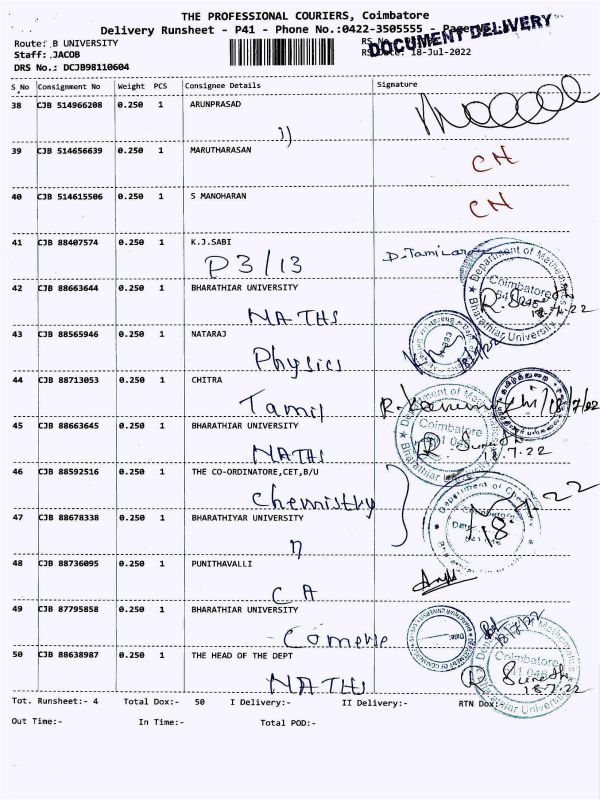 THE PROFESSIONAL COURIERS, Coimbatore
Delivery Runsheet - P41 - Phone No.:0422-3505555
DOCUMENT DELIVERY
Route: B UNIVERSITY
Staff: JACOB
RS Date: 18-Jul-2022
DRS No.: DCJB98110604
S_No Consignment No Weight PCS Consignee Details Signature
38 CJB 514966208 0.250 1 ARUNPRASAD
39 CJB 514656639 0.250 1 MARUTHARASAN CN
40 CJB 514615506 0.250 1 S MANOHARAN CN
41 CJB 88407574 0.250 1 K.J.SABI
P3/13
42 CJB 88663644 0.250 1 BHARATHIAR UNIVERSITY
MATHS 18.7.22
43 CJB 88565946 0.250 1 NATARAJ
Physics
44 CJB 88713053 0.250 1 CHITRA
Tamil 18/7/22
45 CJB 88663645 0.250 1 BHARATHIAR UNIVERSITY
MATHS 18.7.22
46 CJB 88592516 0.250 1 THE CO-ORDINATORE,CET,B/U
Chemistry
47 CJB 88678338 0.250 1 BHARATHIYAR UNIVERSITY
48 CJB 88736095 0.250 1 PUNITHAVALLI
CA
49 CJB 87795858 0.250 1 BHARATHIAR UNIVERSITY
50 CJB 88638987 0.250 1 THE HEAD OF THE DEPT
MATHS 18.7.22
Tot. Runsheet:- 4 Total Dox:- 50 I Delivery:- II Delivery:- RTN Dox:-
Out Time:- In Time:- Total POD:-